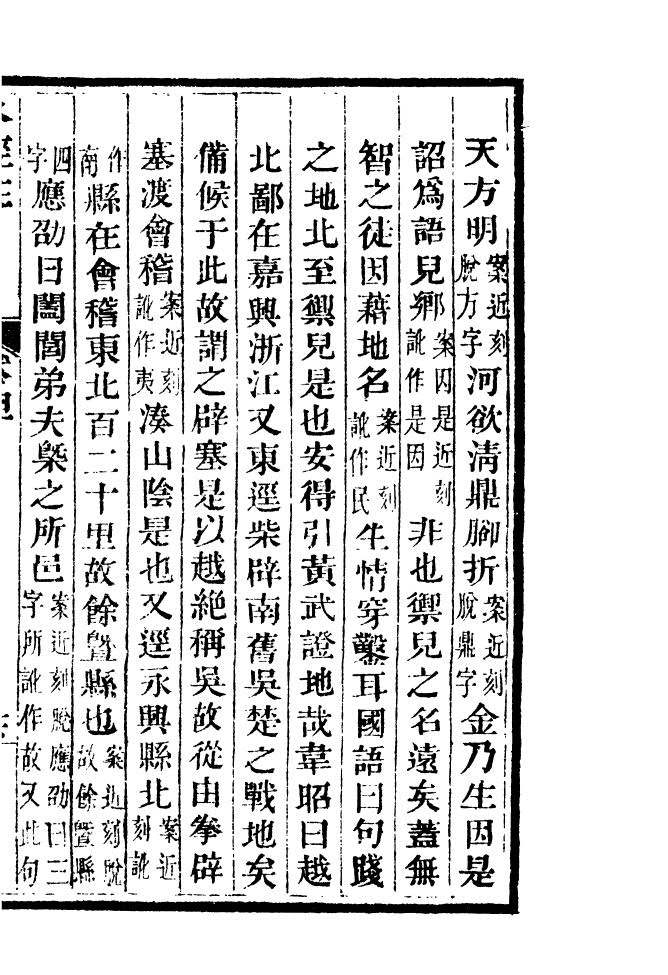 天方明案近刻脫方字河欲清鼎腳折案近刻脫鼎字金乃生因是
詔爲語兒鄉案因是近刻訛作是因非也禦兒之名遠矣蓋無
智之徒因藉地名案近刻訛作民生情穿鑿耳國語曰句踐
之地北至禦兒是也安得引黃武證地哉韋昭曰越
北鄙在嘉興浙江又東逕柴辟南舊吳楚之戰地矣
備候于此故謂之辟塞是以越絕稱吳故從由拳辟
塞渡會稽案近刻訛作夷湊山陰是也又逕永興縣北案近刻訛
作南縣在會稽東北百二十里故餘暨縣也案近刻脫故餘暨縣
四字應劭曰闔閭弟夫槩之所邑案近刻脫應劭曰三字所訛作故又此句